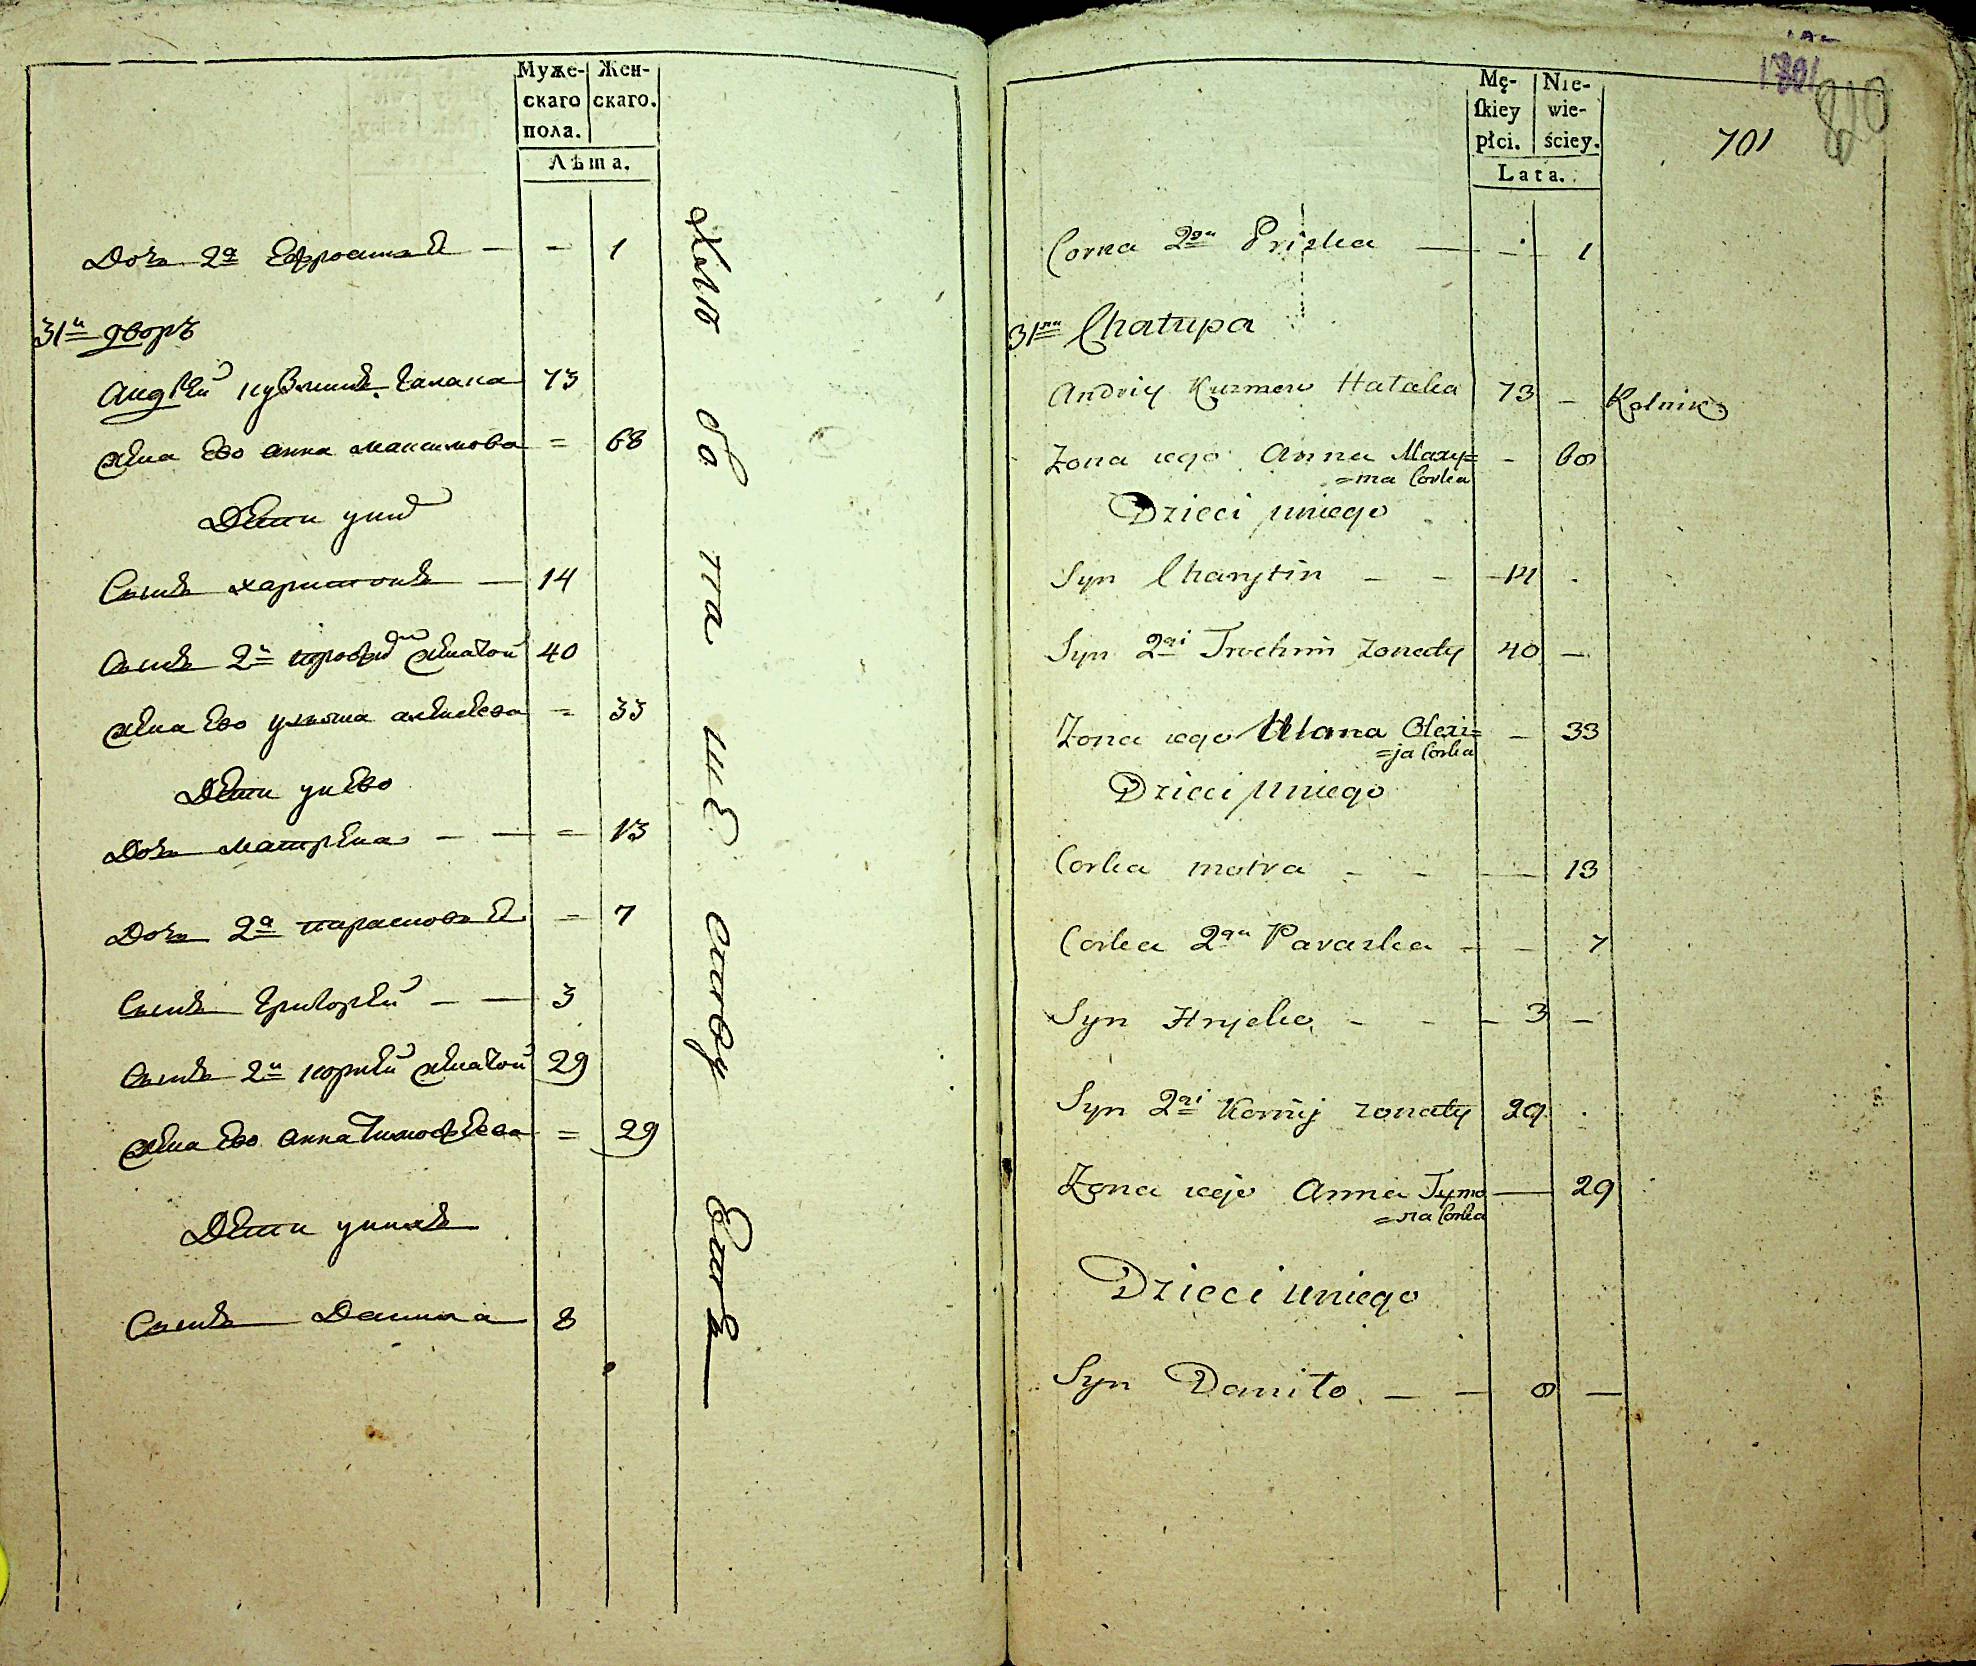 Муже-
скаго
пола.
Жен-
скаго.
Лѣта.
Дочь 2я Ефросинья — - 1
31й дворъ
Андрѣй Кузминъ Галака 73
Жена Ево Анна Максимова = 68
Дѣти у них
Сынъ Харитонъ — 14
Сынъ 2й женатой 40
Жена Ево Ульяна Алексѣева = 33
Дѣти у нево
Дочь Матрена — — = 13
Дочь 2я Парасковья = 7
Сынъ Григорѣй — — 3
Сынъ 2й Корнѣй женатой 29
Жена Ево Анна Тимофѣева = 29
Дѣти у нихъ
Сынъ Данила 8
Mę-
ſkiey
płci.
Nie-
wie-
ściey.
Lata.
701
Corka 2ga Pryska — - 1
31sza Chałupa
Andriy Kuzmow Hałaka 73 — Rolnik
Zona iego Anna Maxy=
=ma Corka - 68
Dzieci u niego
Syn Charytin - - - 14
Syn 2gi Trochim zonaty 40 —
Zona iego Ulana Olexi=
=ja Corka — 33
Dzieci u niego
Corka Motra - - — 13
Corka 2ga Paraska - - 7
Syn Hryćko - - - 3 —
Syn 2gi Kornij zonaty 29
Zona iego Anna Tymo
=sza Corka — 29
Dzieci u niego
Syn Daniło — — 8 —